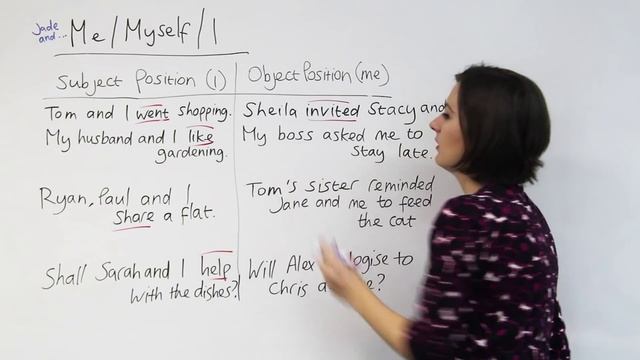 Jade
and...
Me/Myself/I
Subject Position (I)
Tom and I went shopping.
My husband and I like
gardening.
Ryan, Paul and I
share a flat.
Shall Sarah and I help
with the dishes?
Object Position (me)
Sheila invited Stacy and
My boss asked me to
stay late.
Tom's sister reminded
Jane and me to feed
the cat
Will Alex to
Chris